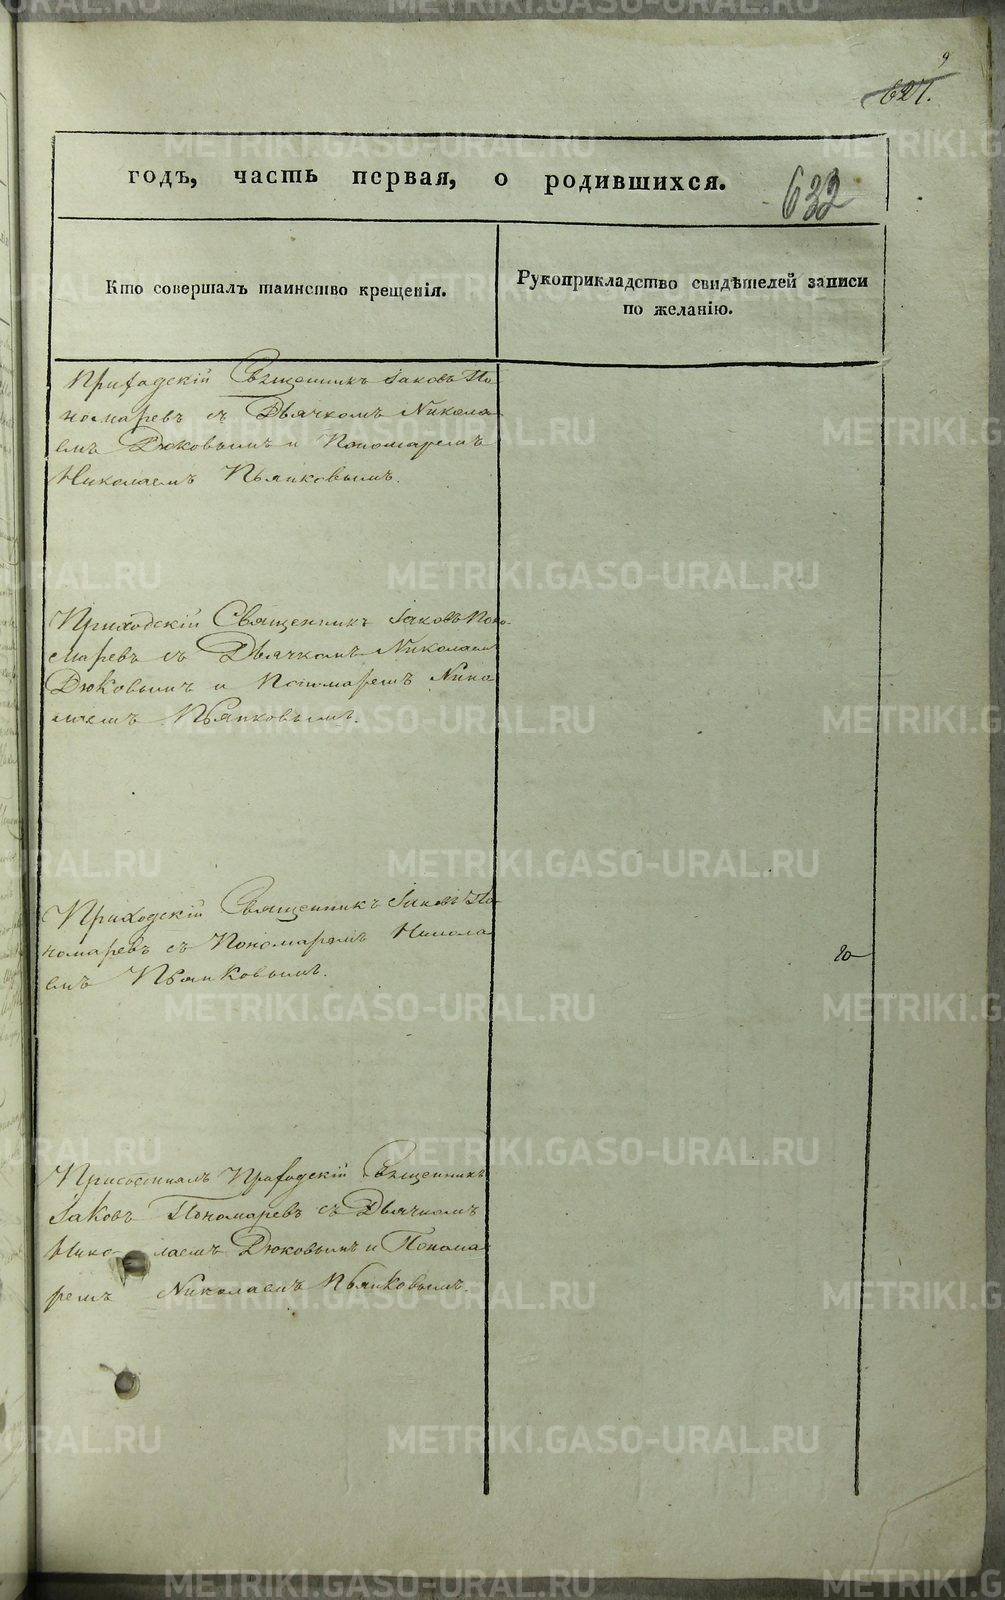 9
627.
годъ, часть первая, о родившихся.
632
Кто совершалъ таинство крещенія.
Рукоприкладство свидѣтелей записи
по желанію.
Приходскій Священникъ Іаковъ По
номаревъ съ Дьячкомъ Никола
емъ Дюковымъ и Пономаремъ
Николаемъ Пьянковымъ.
Приходскій Священникъ Іаковъ Поно-
маревъ съ Дьячкомъ Николаемъ
Дюковымъ и Пономаремъ Нико
лаемъ Пьянковымъ.
Приходскій Священникъ Іаковъ По
номаревъ съ Пономаремъ Никола
емъ Пьянковымъ.
Приходскій Священникъ
Іаковъ Пономаревъ съ Дьячкомъ
Николаемъ Дюковымъ и Понома
ремъ Николаемъ Пьянковымъ.
METRIKI.GASO-URAL.RU